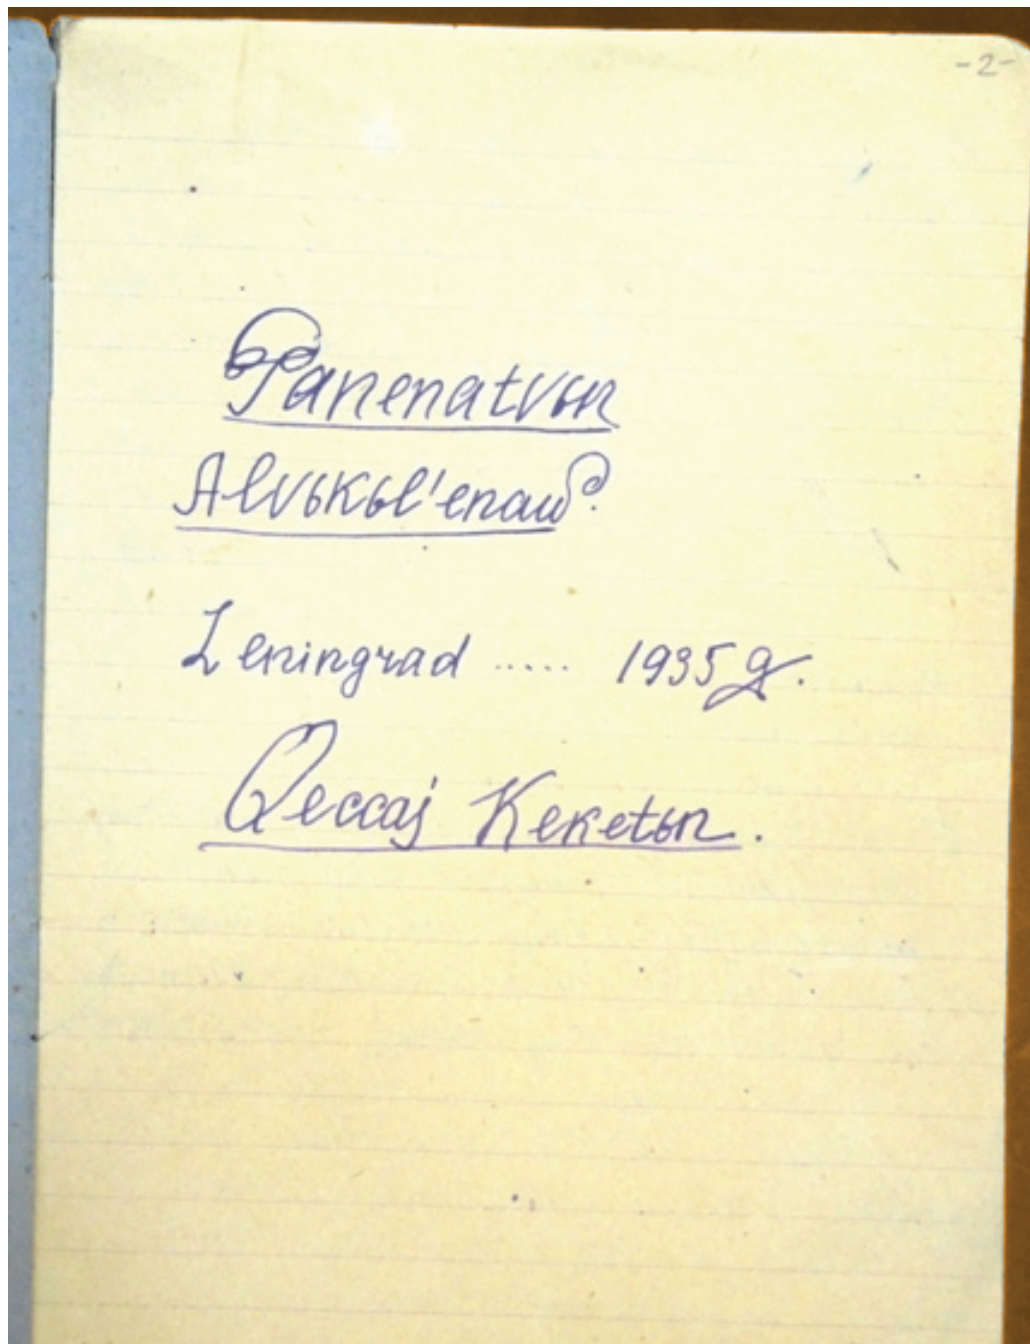 -2-
Panenatvьn
Alvьkьl'enaw.
Leningrad ..... 1935 g.
Qeccaj Keketьn.